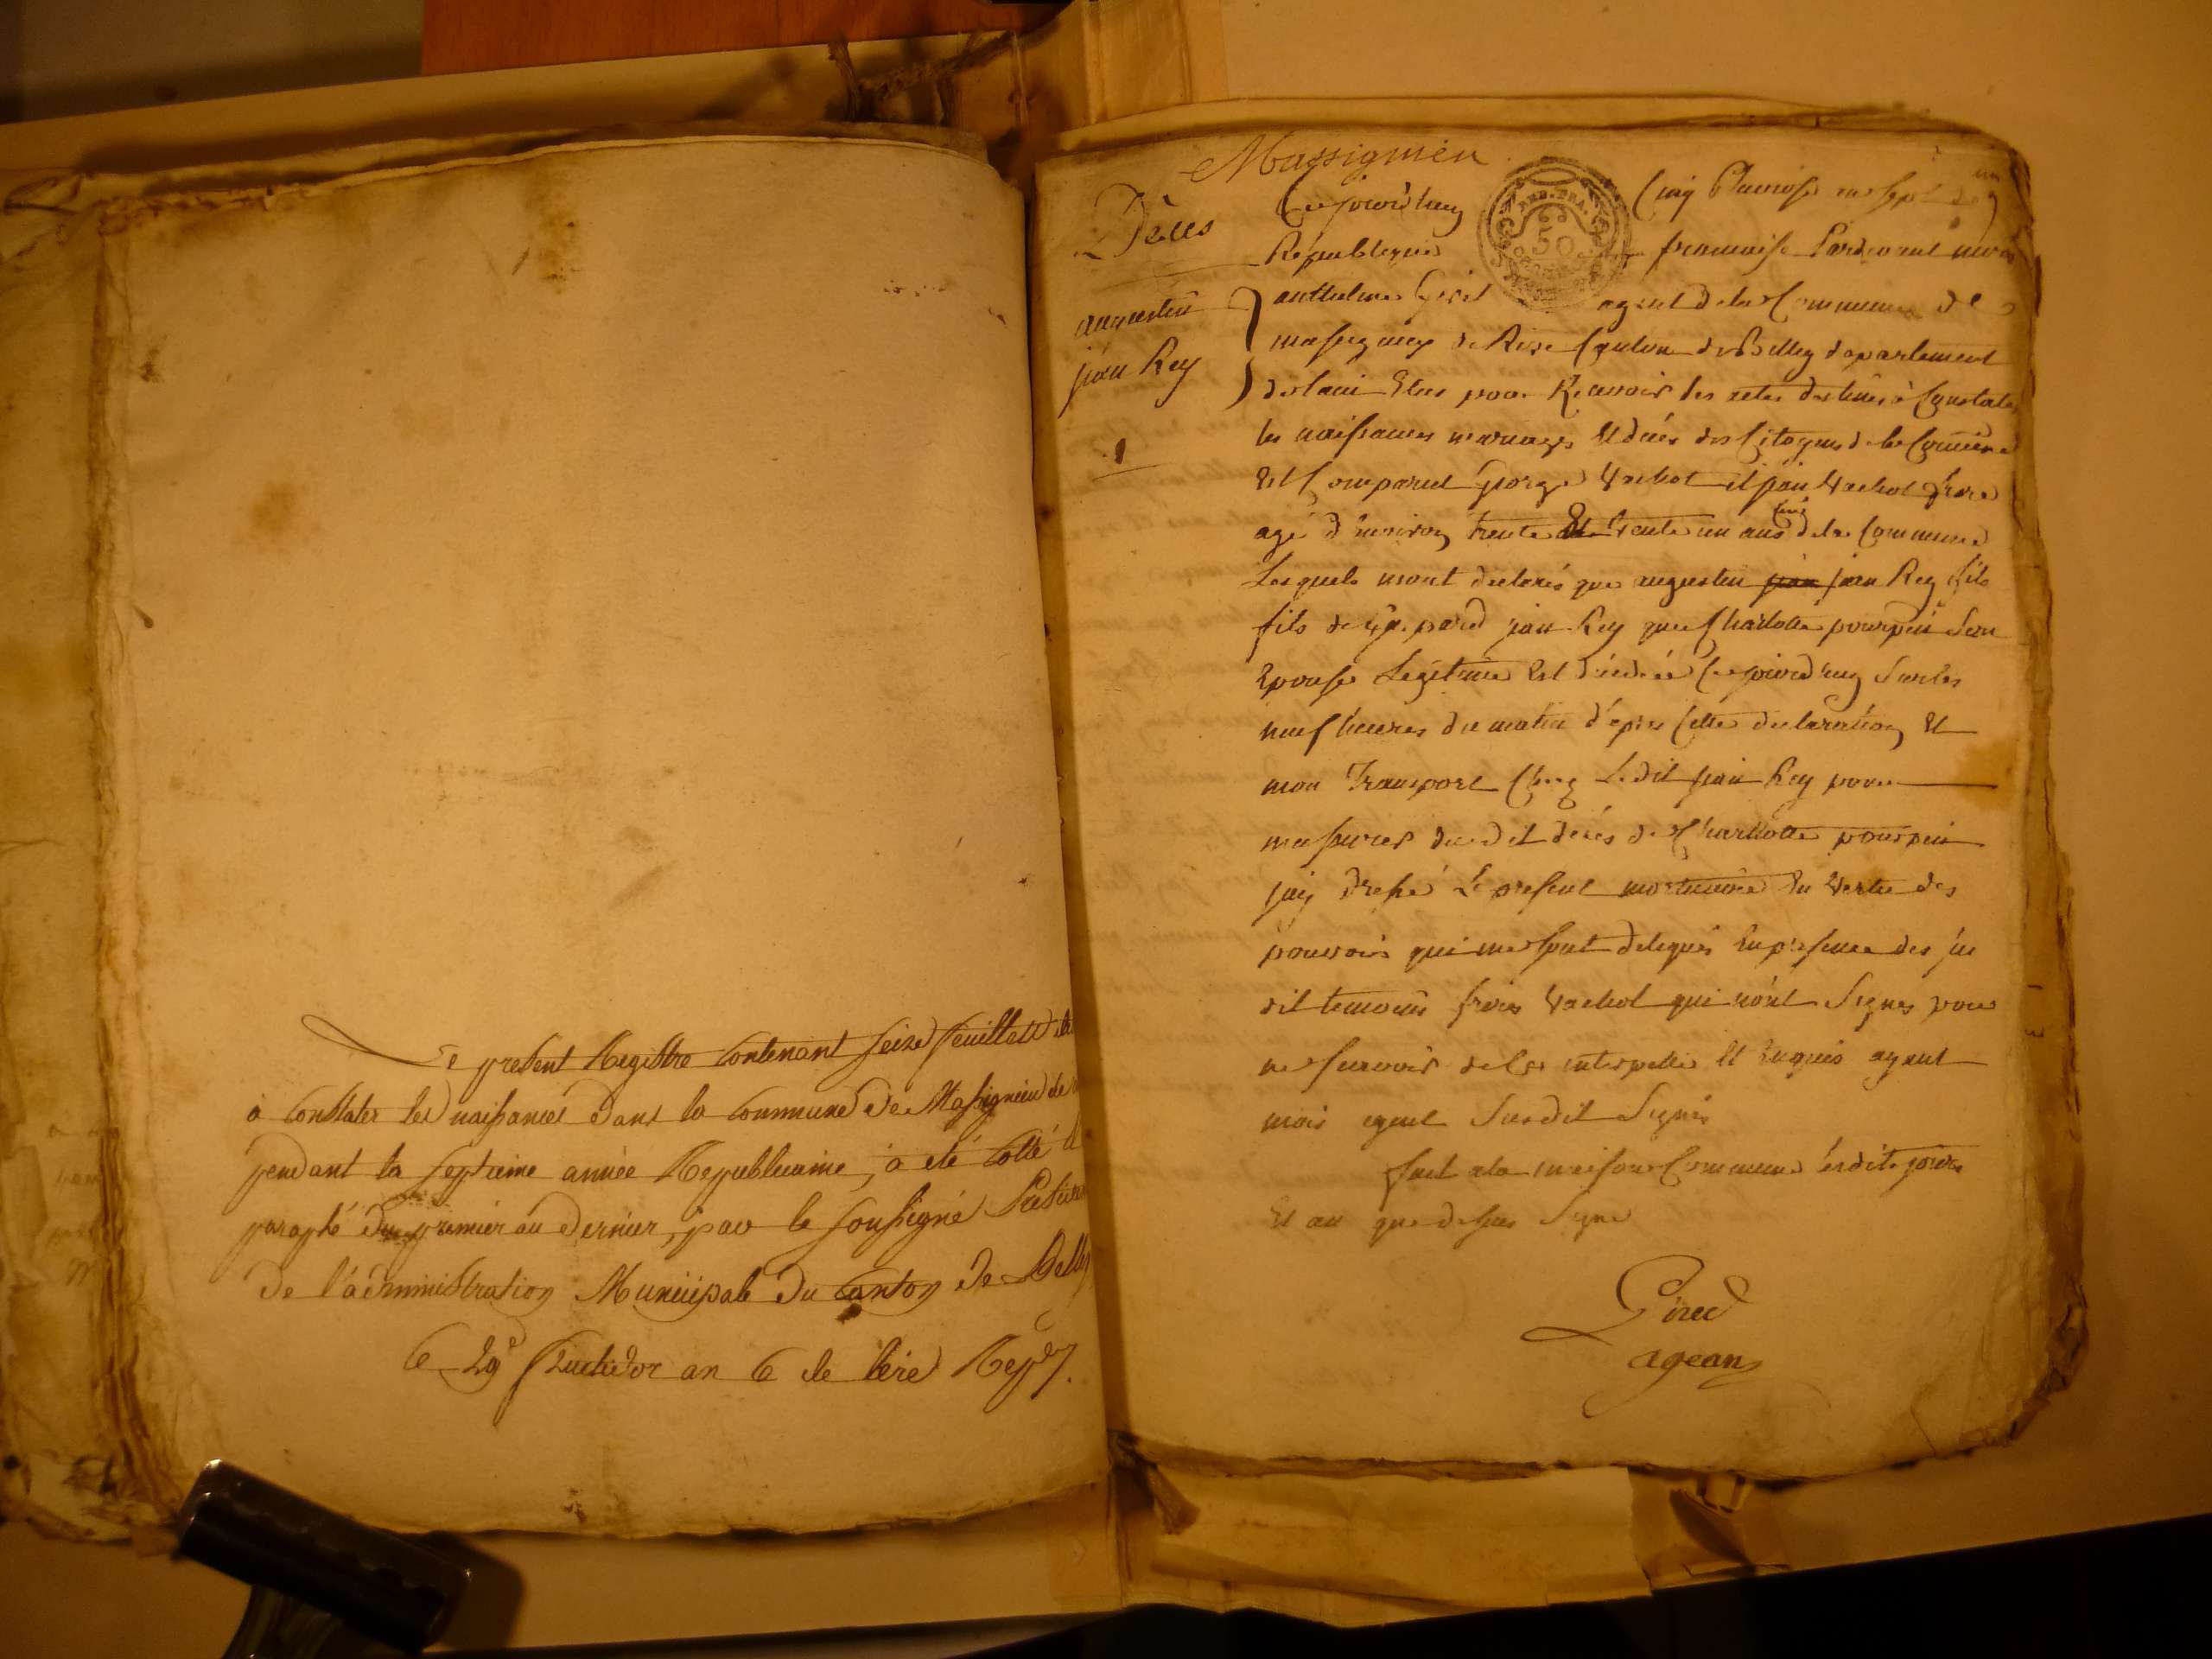 Le present Registre contenant seize feuillets
à constater les naissances dans la commune de Massignieu de
pendant la septieme année Republicaine, a eté cotté
paraphé du premier au dernier, par le soussigné
De l'administration Municipale du canton de Belley
le 29e fructidor an 6 de l'ere
Massignieu
Décès
augustin
jean Rey
1
un
Ce jourd'huy cinq Pluviose an sept de
Republique francaise Pardevant moi
REP. FRA.
50
anthelme Girel agent de la Commune de
massignieu de Rive Canton de Belley departement
de lain Elus pour Recevoir les actes destinés à Constater
les naissances mariages Et décés des Citoyens de la Commune
Est Comparut George Vachot et jean Vachot frere
agé d'environ trente et trente un ans de la Commune
Lesquels mont declarés que augustin jean jean Rey fils
fils de jean Rey que Charlotte pourpein Son
Epouse Legitime Est décédé Ce jourd'huy Sur les
neuf heures du matin d'apres Cette declaration Et
mon Transport Chez Ledit jean Rey pour
massurer dudit décés de Charlotte pourpein
jay dressé Le present mortuaire En vertu des
pouvoirs qui me sont delegués En presence des sus
dit temoins freres Vachot qui n'ont Signes pour
ne scavoir de Ce interpellé Et Requis agent
mois agent Susdit Signés
fait a la maison Commune lesdits jour
Et an que dessus Signe
Girel
agean